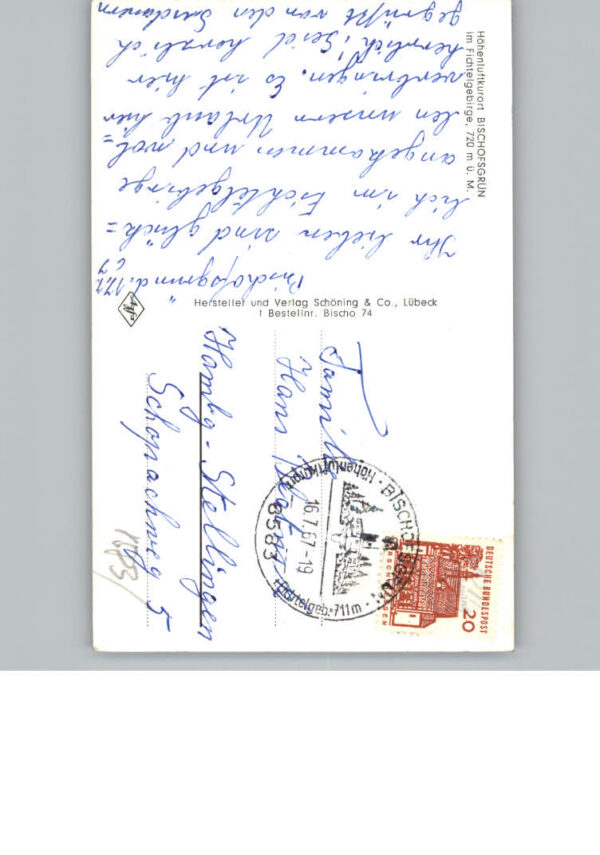 Höhenluftkurort BISCHOFSGRÜN
im Fichtelgebirge, 720 m ü. M.
Ihr Lieben sind glück=
lich im Fichtelgebirge
angekommen und wol=
len unsern Urlaub hier
verbringen. Es ist hier
herrlich! Seid herzlich
gegrüßt von den
Agfa
Hersteller und Verlag Schöning & Co., Lübeck
Bestellnr. Bischo 74
Familie
Hans
Hambg-Stellingen
Schopbachweg 5
BISCHOFSGRÜN
Höhenluftkurort
16.7.67-19
8583
Fichtelgeb. 711m
DEUTSCHE BUNDESPOST
20